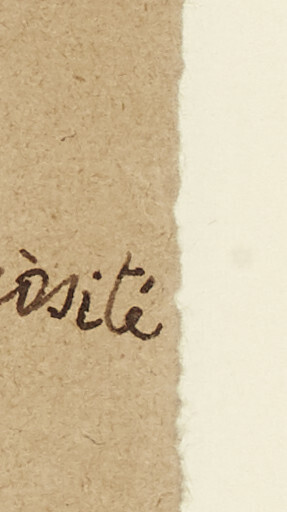 iosité